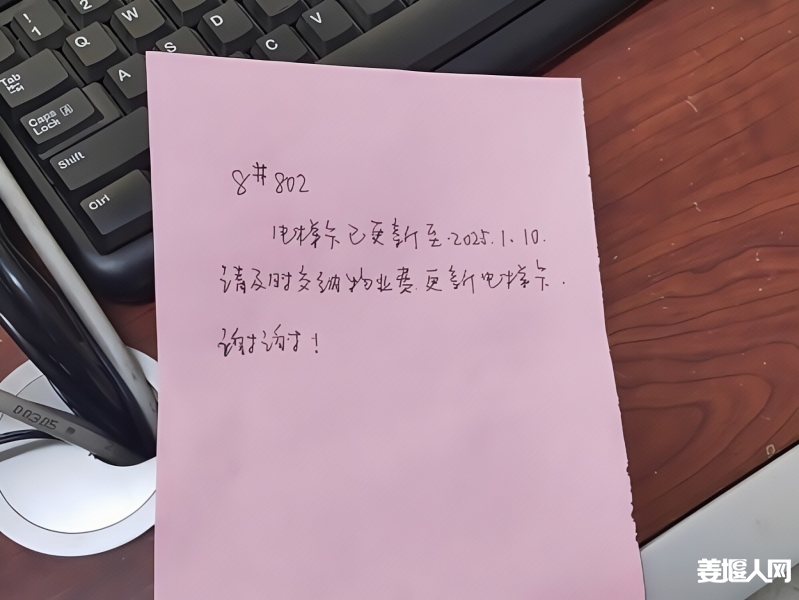 ! 1
2
Q
W
Tab
A
S
D
Caps Lock A
C
V
Shift
Ctrl
8#802
电梯卡已更新至.2025.1.10.
请及时交纳物业费.更新电梯卡.
谢谢!
00305
姜堰人网